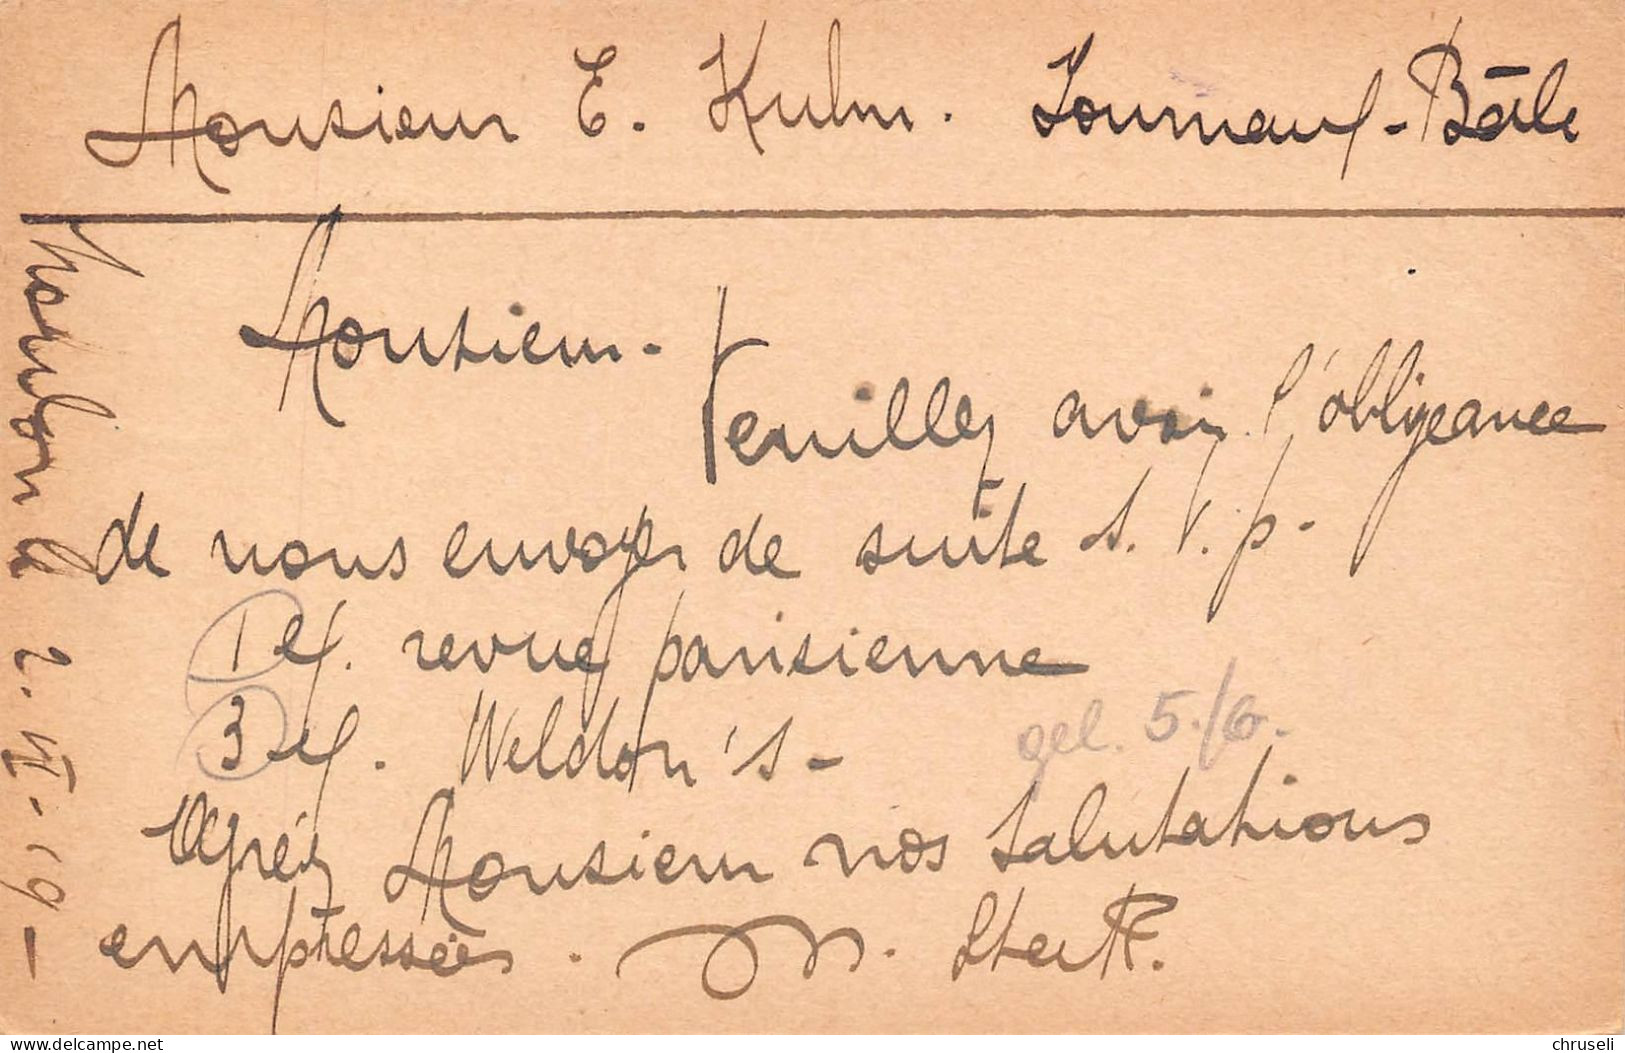 Monsieur E. Kuhn. Journaux - Bâle
Moudon le 2. VI. 19 -
Monsieur.
Veuillez avoir l'obligeance
de nous envoyer de suite s. v. p.
1 ex. revue parisienne
3 ex. Weldon's -
gel. 5./6.
Agréez Monsieur nos salutations
empressées.
delcampe.net
chruseli